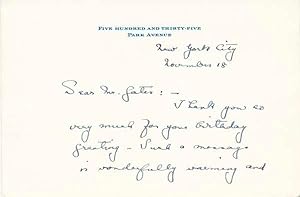 FIVE HUNDRED AND THIRTY-FIVE
PARK AVENUE
New York City
November 18
Dear Mr. Gates: -
Thank you so
very much for your birthday
greeting - Such a message
is wonderfully warming and